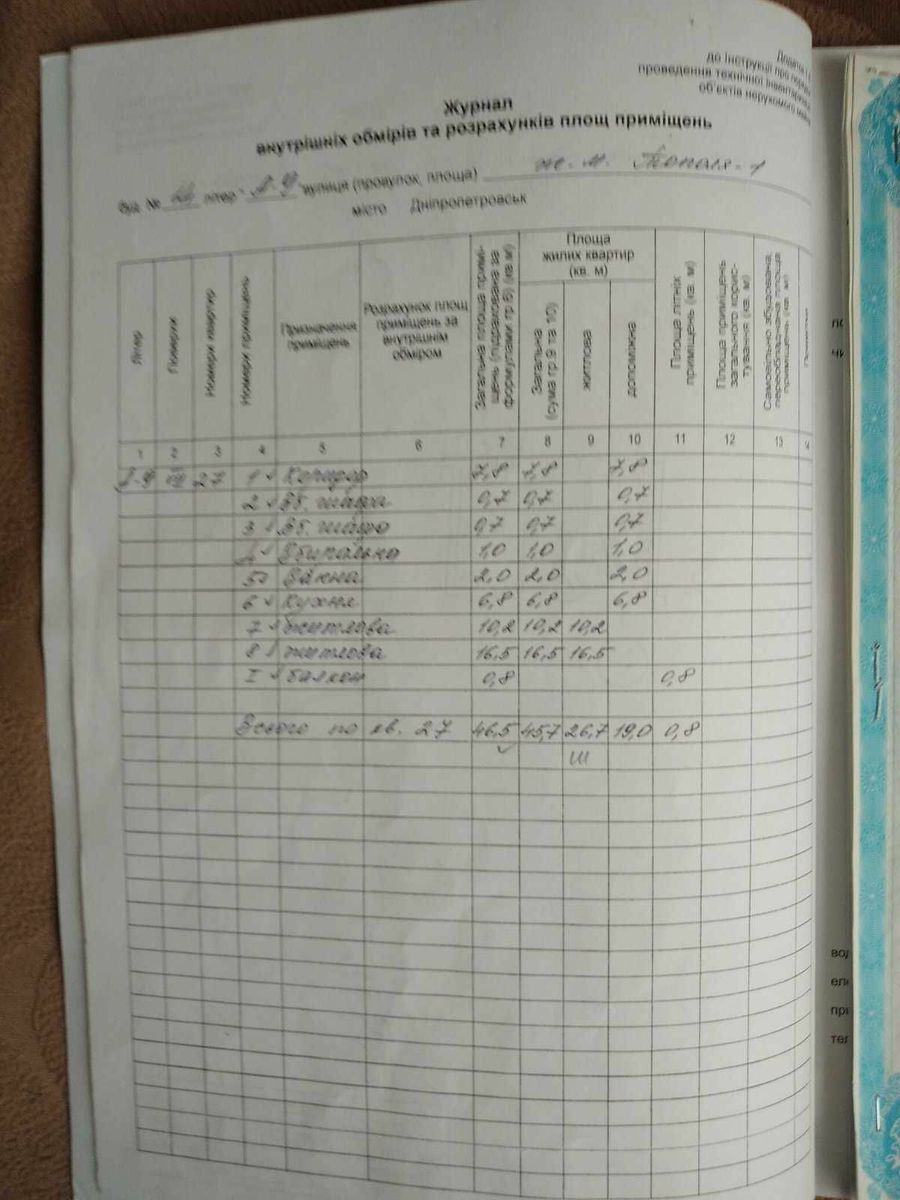 Додаток
до Інструкції про
проведення технічної інвентаризації
об'єктів нерухомого майна
Журнал
внутрішніх обмірів та розрахунків площ приміщень
буд. № літер "А-9" вулиця (провулок, площа) ж. м. Тополя-1
місто Дніпропетровськ
Літер Поверхи Номери квартир Номери приміщень Призначення приміщень Розрахунок площ приміщень за внутрішнім обміром Загальна площа приміщень (підрахована за формулами гр.6) (кв.м) Площа жилих квартир (кв. м) Загальна (сума гр.9 та 10) житлова допоміжна Площа літніх приміщень (кв. м) Площа приміщень загального користування (кв. м) Самовільно збудована, переобладнана площа приміщень (кв. м)
1 2 3 4 5 6 7 8 9 10 11 12 13
А-9 27 1 Коридор 7,8 7,8 7,8
2 Вб. шафа 0,7 0,7 0,7
3 Вб. шафа 0,7 0,7 0,7
4 Вбиральня 1,0 1,0 1,0
5 Ванна 2,0 2,0 2,0
6 Кухня 6,8 6,8 6,8
7 житлова 10,2 10,2 10,2
8 житлова 16,5 16,5 16,5
I балкон 0,8 0,8
Всього по кв. 27 46,5 45,7 26,7 19,0 0,8
вод
еле
при
тел